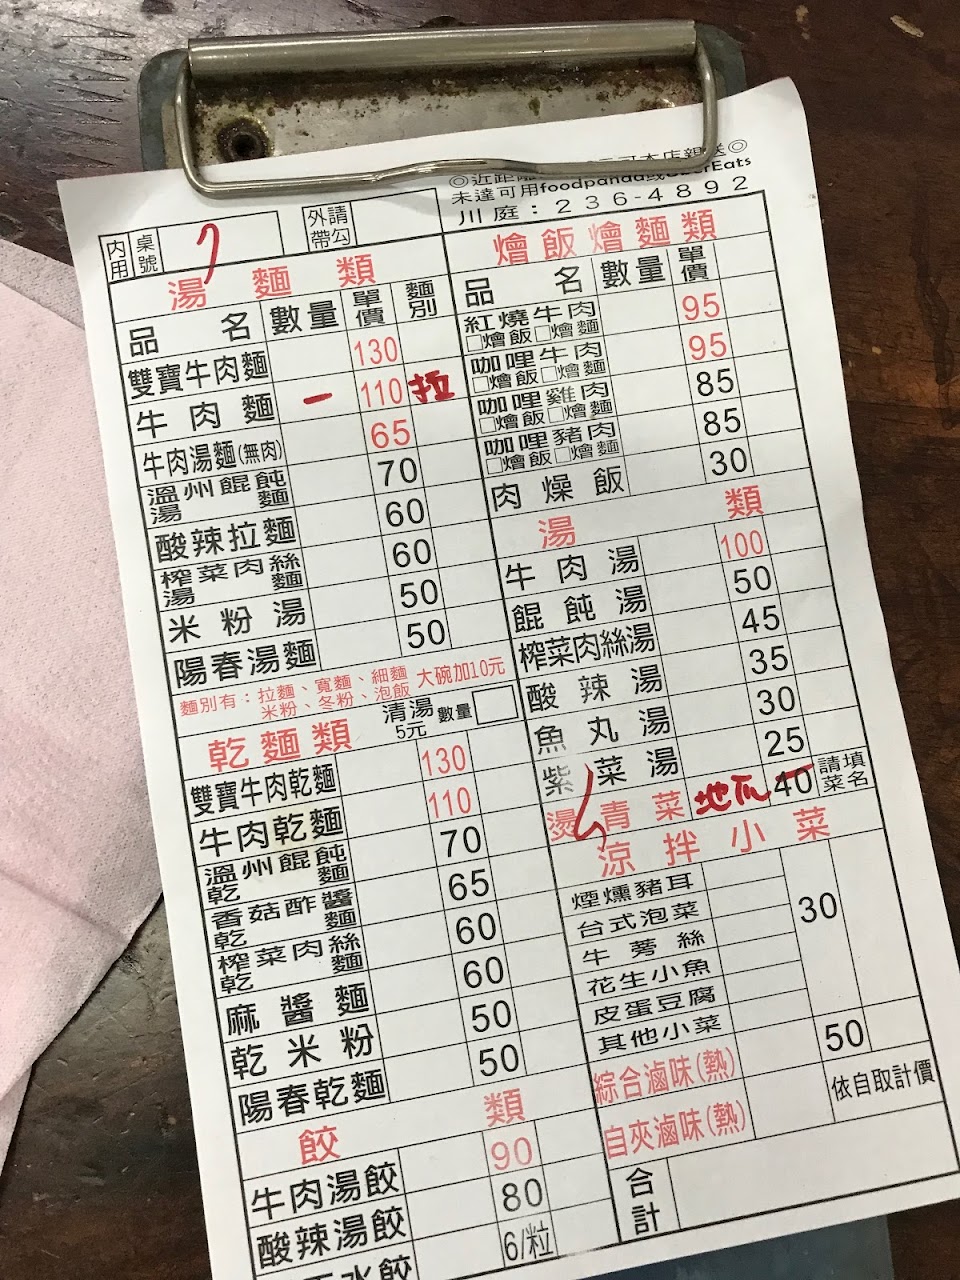 未達可用foodpanda或UberEats
川庭：236-4892
內用 桌號 7 外帶 請公
湯麵類
品名 數量 單價 麵別
雙寶牛肉麵 130
牛肉麵 一 110 拉
牛肉湯麵(無肉) 65
溫州餛飩湯麵 70
酸辣拉麵 60
榨菜肉絲湯麵 60
米粉湯 50
陽春湯麵 50
麵別有：拉麵、寬麵、細麵
米粉、冬粉、泡飯
大碗加10元
乾麵類 清湯5元 數量
雙寶牛肉乾麵 130
牛肉乾麵 110
溫州餛飩乾麵 70
香菇酢醬乾麵 65
榨菜肉絲乾麵 60
麻醬麵 60
乾米粉 50
陽春乾麵 50
餃類
牛肉湯餃 90
酸辣湯餃 80
水餃 6/粒
燴飯燴麵類
品名 數量 單價
紅燒牛肉 □燴飯□燴麵 95
咖哩牛肉 □燴飯□燴麵 95
咖哩雞肉 □燴飯□燴麵 85
咖哩豬肉 □燴飯□燴麵 85
肉燥飯 30
湯類
牛肉湯 100
餛飩湯 50
榨菜肉絲湯 45
酸辣湯 35
魚丸湯 30
紫菜湯 25
燙青菜 地瓜 40 請填菜名
涼拌小菜
煙燻豬耳 30
台式泡菜
牛蒡絲
花生小魚
皮蛋豆腐
其他小菜
綜合滷味(熱) 50
自夾滷味(熱) 依自取計價
合計